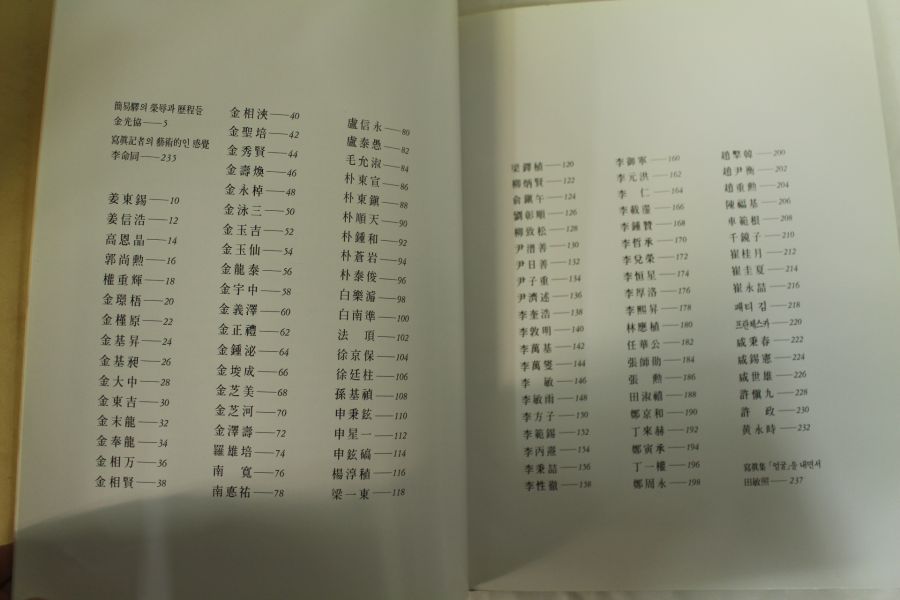 簡易驛의 榮辱과 歷程들
金光協——5
寫眞記者의 藝術的인 感覺
李命同——235
姜東錫——10
姜信浩——12
高恩晶——14
郭尚勲——16
權重輝——18
金璟梧——20
金槿原——22
金基昇——24
金基昶——26
金大中——28
金東吉——30
金末龍——32
金奉龍——34
金相万——36
金相賢——38
金相浹——40
金聖培——42
金秀賢——44
金壽煥——46
金永棹——48
金泳三——50
金玉吉——52
金玉仙——54
金龍泰——56
金宇中——58
金義澤——60
金正禮——62
金鍾泌——64
金埈成——66
金芝美——68
金芝河——70
金澤壽——72
羅雄培——74
南 寬——76
南悳祐——78
盧信永——80
盧泰愚——82
毛允淑——84
朴東宣——86
朴東鎭——88
朴順天——90
朴鍾和——92
朴蒼岩——94
朴泰俊——96
白樂濬——98
白南準——100
法 頂——102
徐京保——104
徐廷柱——106
孫基禎——108
申秉鉉——110
申星一——112
申鉉碻——114
楊淳稙——116
梁一東——118
梁鐸植——120
柳炳賢——122
兪鎭午——124
劉彰順——126
柳致松——128
尹潽善——130
尹日善——132
尹子重——134
尹濟述——136
李奎浩——138
李敦明——140
李萬基——142
李萬燮——144
李 敏——146
李敏雨——148
李方子——150
李範錫——152
李丙燾——154
李秉喆——156
李性徹——158
李御寧——160
李元洪——162
李 仁——164
李載瀅——166
李鍾贊——168
李哲承——170
李兒榮——172
李恒星——174
李厚洛——176
李熙昇——178
林應植——180
任華公——182
張師勛——184
張 勲——186
田淑禧——188
鄭京和——190
丁來赫——192
鄭寅承——194
丁一權——196
鄭周永——198
趙擎韓——200
趙尹衡——202
趙重勲——204
陳福基——206
車範根——208
千鏡子——210
崔桂月——212
崔圭夏——214
崔永喆——216
패티 김——218
프란체스카——220
咸秉春——222
咸錫憲——224
咸世雄——226
許愼九——228
許 政——230
黃永時——232
寫眞集「얼굴」을 내면서
田敏照——237